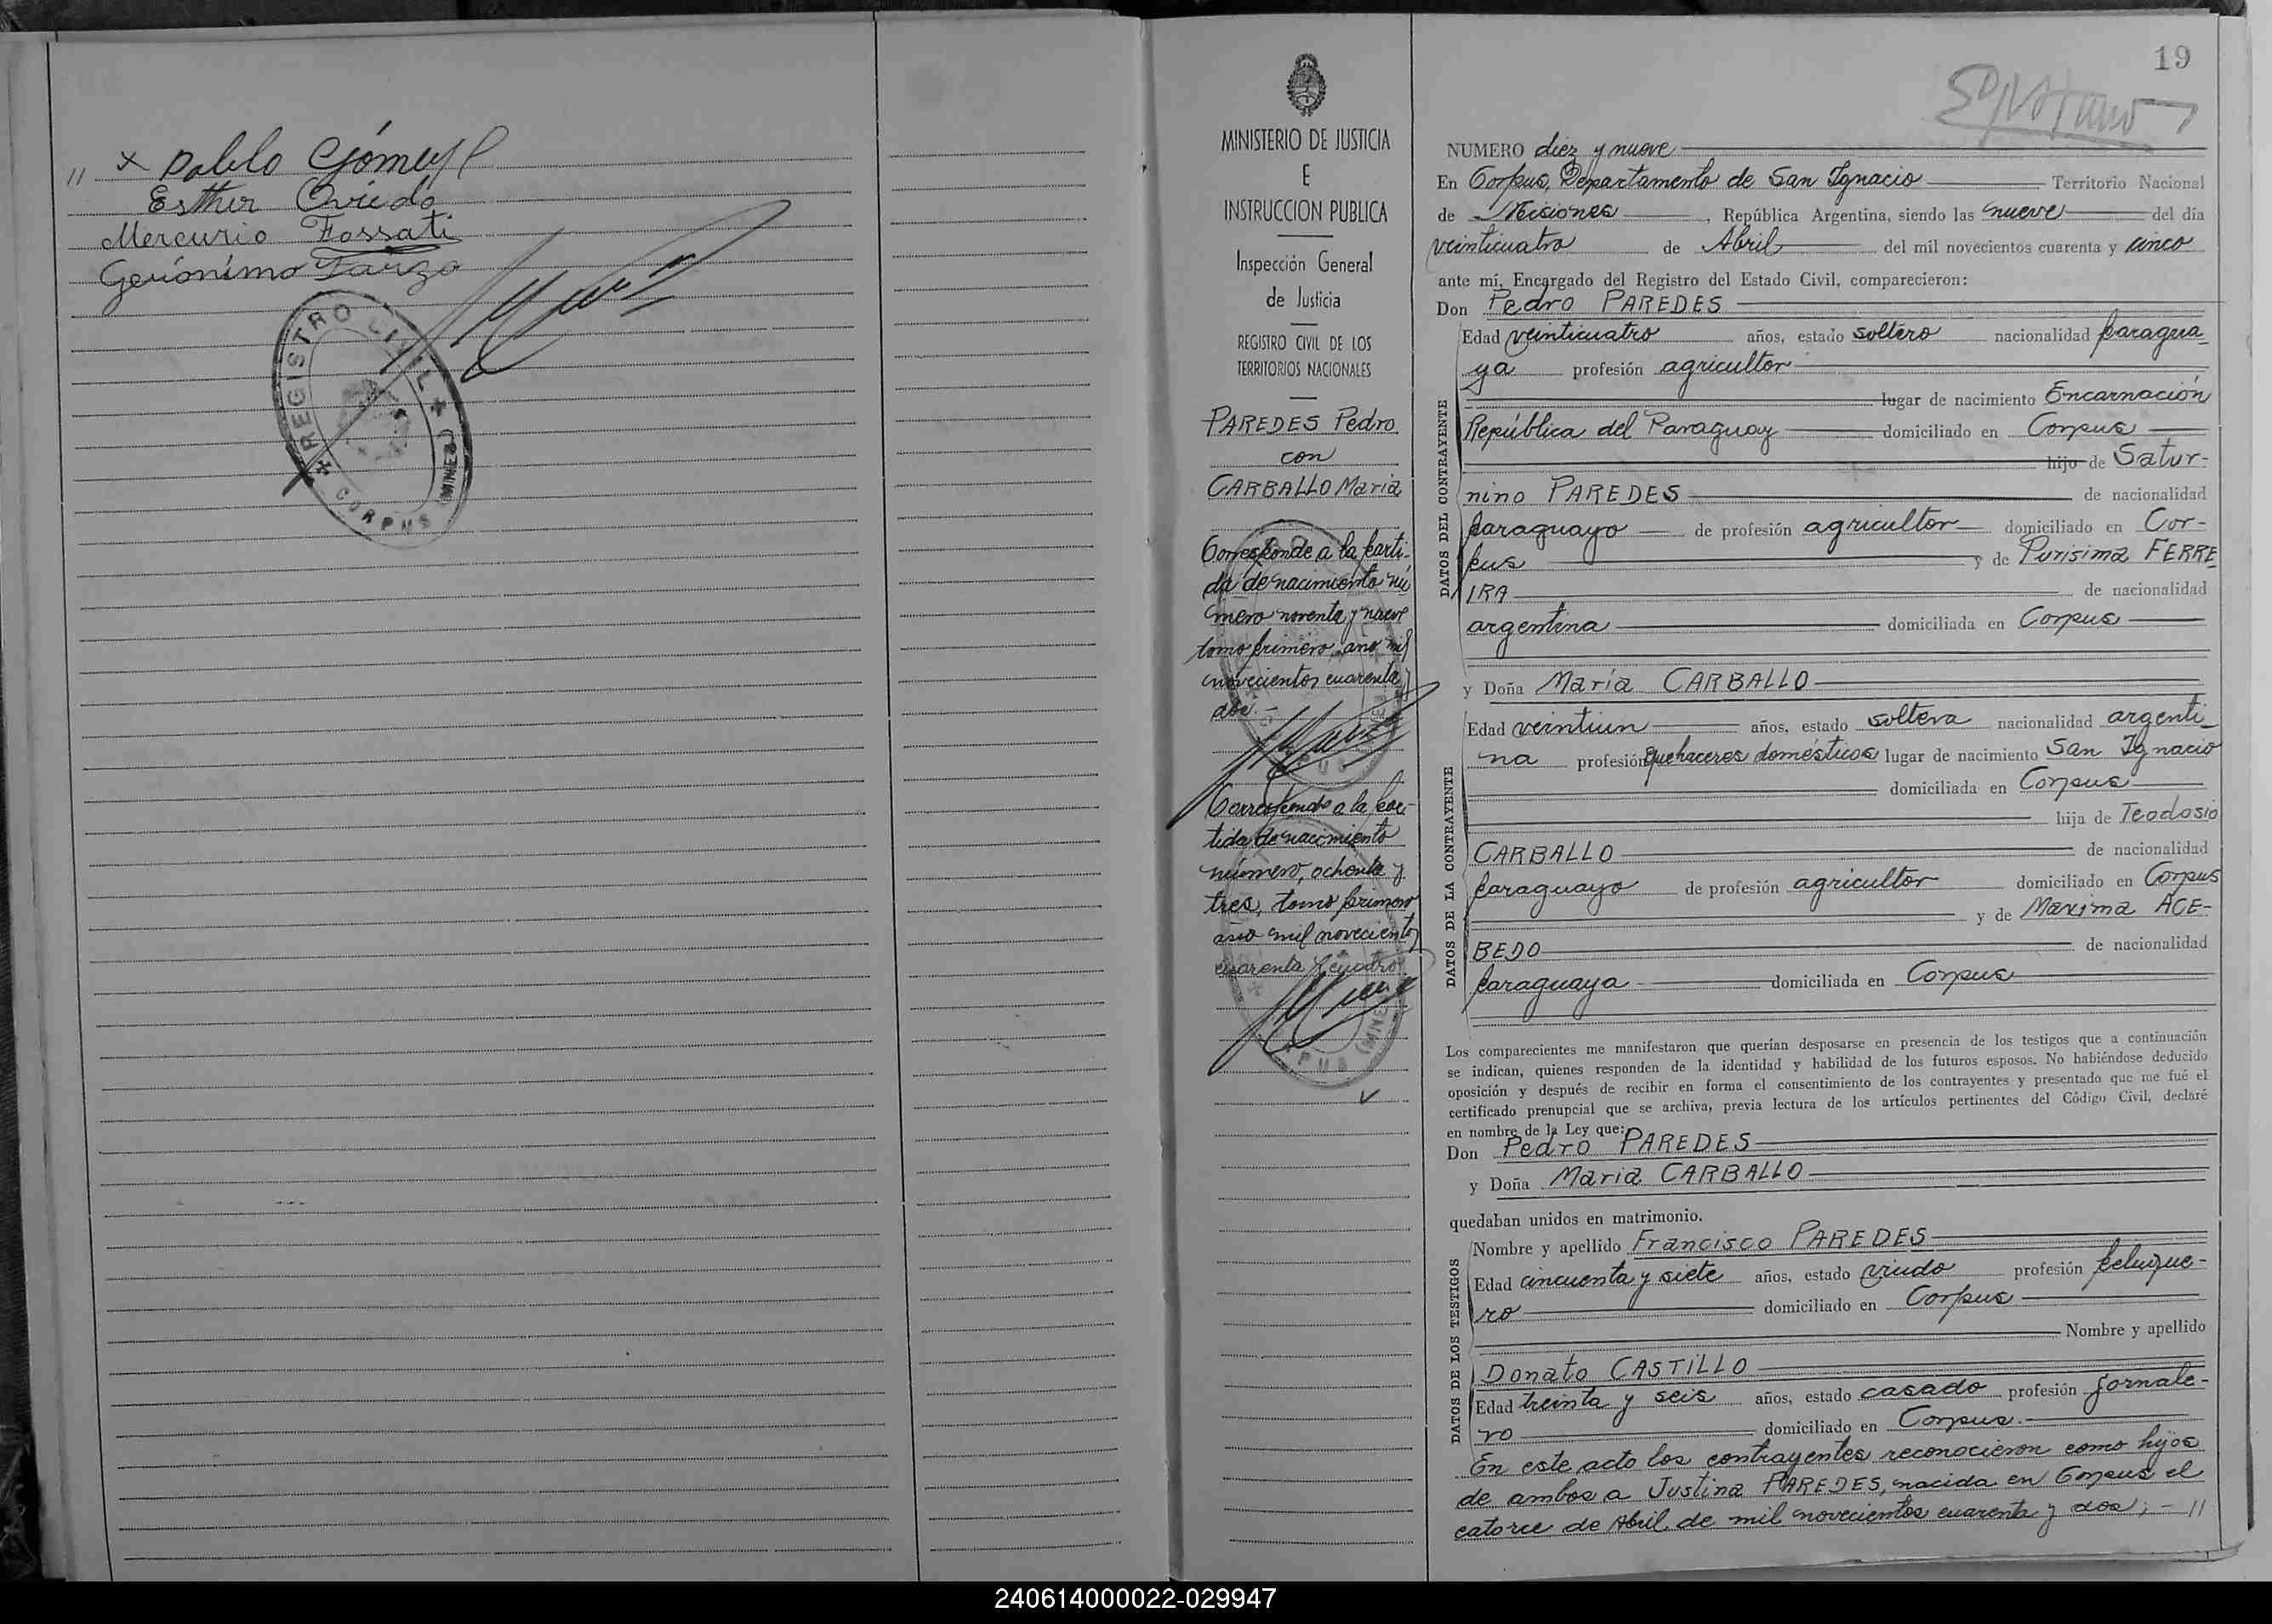 " x Pablo Gómez
Esther Oviedo
Mercurio Fossati
Gerónimo
REGISTRO CIVIL
CORPUS (MNES)
MINISTERIO DE JUSTICIA
E
INSTRUCCION PUBLICA
Inspección General
de Justicia
REGISTRO CIVIL DE LOS
TERRITORIOS NACIONALES
PAREDES Pedro
con
CARBALLO Maria
Corresponde a la parti-
da de nacimiento nú
mero noventa y nueve
tomo primero, año mil
novecientos cuarenta y
dos.-
Corresponde a la par-
tida de nacimiento
número, ochenta y
tres, tomo primero
año mil novecientos
cuarenta y cuatro
19
NUMERO diez y nueve
En Corpus, Departamento de San Ignacio Territorio Nacional
de Misiones, República Argentina, siendo las nueve del día
veinticuatro de Abril del mil novecientos cuarenta y cinco
ante mí, Encargado del Registro del Estado Civil, comparecieron:
Don Pedro PAREDES
DATOS DEL CONTRAYENTE
Edad veinticuatro años, estado soltero nacionalidad paragua-
ya profesión agricultor
lugar de nacimiento Encarnación
República del Paraguay domiciliado en Corpus
hijo de Satur-
nino PAREDES de nacionalidad
paraguayo de profesión agricultor domiciliado en Cor-
pus y de Purisima FERRE
IRA de nacionalidad
argentina domiciliada en Corpus
y Doña Maria CARBALLO
DATOS DE LA CONTRAYENTE
Edad veintiun años, estado soltera nacionalidad argenti-
na profesión quehaceres domésticos lugar de nacimiento San Ignacio
domiciliada en Corpus
hija de Teodosio
CARBALLO de nacionalidad
paraguayo de profesión agricultor domiciliado en Corpus
y de Maxima ACE-
BEDO de nacionalidad
paraguaya domiciliada en Corpus
Los comparecientes me manifestaron que querían desposarse en presencia de los testigos que a continuación
se indican, quienes responden de la identidad y habilidad de los futuros esposos. No habiéndose deducido
oposición y después de recibir en forma el consentimiento de los contrayentes y presentado que me fué el
certificado prenupcial que se archiva, previa lectura de los artículos pertinentes del Código Civil, declaré
en nombre de la Ley que:
Don Pedro PAREDES
y Doña Maria CARBALLO
quedaban unidos en matrimonio.
DATOS DE LOS TESTIGOS
Nombre y apellido Francisco PAREDES
Edad cincuenta y siete años, estado viudo profesión peluque-
ro domiciliado en Corpus
Nombre y apellido
Donato CASTILLO
Edad treinta y seis años, estado casado profesión jornale-
ro domiciliado en Corpus.
En este acto los contrayentes reconocieron como hijos
de ambos a Justina PAREDES, nacida en Corpus el
catorce de Abril de mil novecientos cuarenta y dos; - "
240614000022-029947